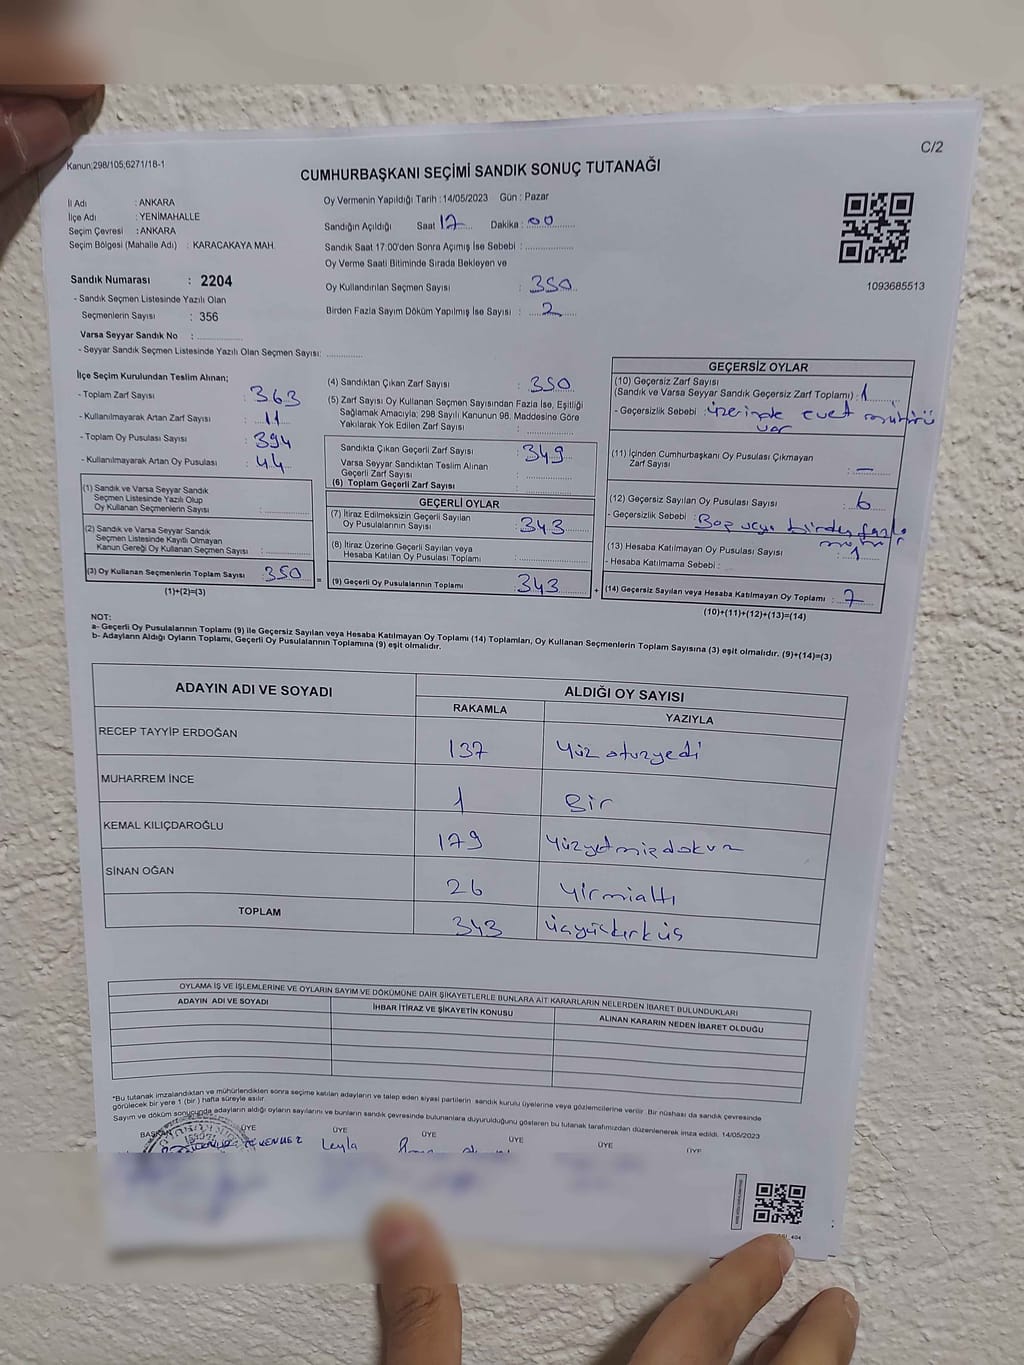 Kanun;298/105;6271/18-1
C/2
CUMHURBAŞKANI SEÇİMİ SANDIK SONUÇ TUTANAĞI
İl Adı : ANKARA
İlçe Adı : YENİMAHALLE
Seçim Çevresi : ANKARA
Seçim Bölgesi (Mahalle Adı) : KARACAKAYA MAH.
Oy Vermenin Yapıldığı Tarih :14/05/2023 Gün : Pazar
Sandığın Açıldığı Saat 17 Dakika : 00
Sandık Saat 17:00'den Sonra Açımış İse Sebebi :
Oy Verme Saati Bitiminde Sırada Bekleyen ve
Oy Kullandırılan Seçmen Sayısı : 350
Birden Fazla Sayım Döküm Yapılmış İse Sayısı : 2
1093685513
Sandık Numarası : 2204
- Sandık Seçmen Listesinde Yazılı Olan
Seçmenlerin Sayısı : 356
Varsa Seyyar Sandık No :
- Seyyar Sandık Seçmen Listesinde Yazılı Olan Seçmen Sayısı:
İlçe Seçim Kurulundan Teslim Alınan;
- Toplam Zarf Sayısı : 363
- Kullanılmayarak Artan Zarf Sayısı : 11
- Toplam Oy Pusulası Sayısı : 394
- Kullanılmayarak Artan Oy Pusulası : 44
(1) Sandık ve Varsa Seyyar Sandık
Seçmen Listesinde Yazılı Olup
Oy Kullanan Seçmenlerin Sayısı :
(2) Sandık ve Varsa Seyyar Sandık
Seçmen Listesinde Kayıtlı Olmayan
Kanun Gereği Oy Kullanan Seçmen Sayısı :
(3) Oy Kullanan Seçmenlerin Toplam Sayısı : 350
(1)+(2)=(3)
(4) Sandıktan Çıkan Zarf Sayısı : 350
(5) Zarf Sayısı Oy Kullanan Seçmen Sayısından Fazla İse, Eşitliği
Sağlamak Amacıyla; 298 Sayılı Kanunun 98. Maddesine Göre
Yakılarak Yok Edilen Zarf Sayısı :
Sandıkta Çıkan Geçerli Zarf Sayısı : 349
Varsa Seyyar Sandıktan Teslim Alınan
Geçerli Zarf Sayısı :
(6) Toplam Geçerli Zarf Sayısı :
GEÇERLİ OYLAR
(7) İtiraz Edilmeksizin Geçerli Sayılan
Oy Pusulalarının Sayısı : 343
(8) İtiraz Üzerine Geçerli Sayılan veya
Hesaba Katılan Oy Pusulası Toplamı :
(9) Geçerli Oy Pusulalarının Toplamı : 343
GEÇERSİZ OYLAR
(10) Geçersiz Zarf Sayısı
(Sandık ve Varsa Seyyar Sandık Geçersiz Zarf Toplamı) : 1
- Geçersizlik Sebebi : üzerinde evet mührü
var
(11) İçinden Cumhurbaşkanı Oy Pusulası Çıkmayan
Zarf Sayısı : -
(12) Geçersiz Sayılan Oy Pusulası Sayısı : 6
- Geçersizlik Sebebi : Boş veya birden fazla
(13) Hesaba Katılmayan Oy Pusulası Sayısı :
- Hesaba Katılmama Sebebi :
(14) Geçersiz Sayılan veya Hesaba Katılmayan Oy Toplamı : 7
(10)+(11)+(12)+(13)=(14)
NOT:
a- Geçerli Oy Pusulalarının Toplamı (9) ile Geçersiz Sayılan veya Hesaba Katılmayan Oy Toplamı (14) Toplamları, Oy Kullanan Seçmenlerin Toplam Sayısına (3) eşit olmalıdır. (9)+(14)=(3)
b- Adayların Aldığı Oyların Toplamı, Geçerli Oy Pusulalarının Toplamına (9) eşit olmalıdır.
ADAYIN ADI VE SOYADI
ALDIĞI OY SAYISI
RAKAMLA YAZIYLA
RECEP TAYYİP ERDOĞAN 137 Yüz otuzyedi
MUHARREM İNCE 1 Bir
KEMAL KILIÇDAROĞLU 179 Yüzyetmişdokuz
SİNAN OĞAN 26 Yirmialtı
TOPLAM 343 Üçyüzkırküç
OYLAMA İŞ VE İŞLEMLERİNE VE OYLARIN SAYIM VE DÖKÜMÜNE DAİR ŞİKAYETLERLE BUNLARA AİT KARARLARIN NELERDEN İBARET BULUNDUKLARI
ADAYIN ADI VE SOYADI İHBAR İTİRAZ VE ŞİKAYETİN KONUSU ALINAN KARARIN NEDEN İBARET OLDUĞU
*Bu tutanak imzalandıktan ve mühürlendikten sonra seçime katılan adayların ve talep eden siyasi partilerin sandık kurulu üyelerine veya gözlemcilerine verilir. Bir nüshası da sandık çevresinde
görülecek bir yere 1 (bir ) hafta süreyle asılır.
Sayım ve döküm sonucunda adayların aldığı oyların sayılarını ve bunların sandık çevresinde bulunanlara duyurulduğunu gösteren bu tutanak tarafımızdan düzenlenerek imza edildi. 14/05/2023
BAŞKAN ÜYE ÜYE ÜYE ÜYE ÜYE ÜYE
Leyla